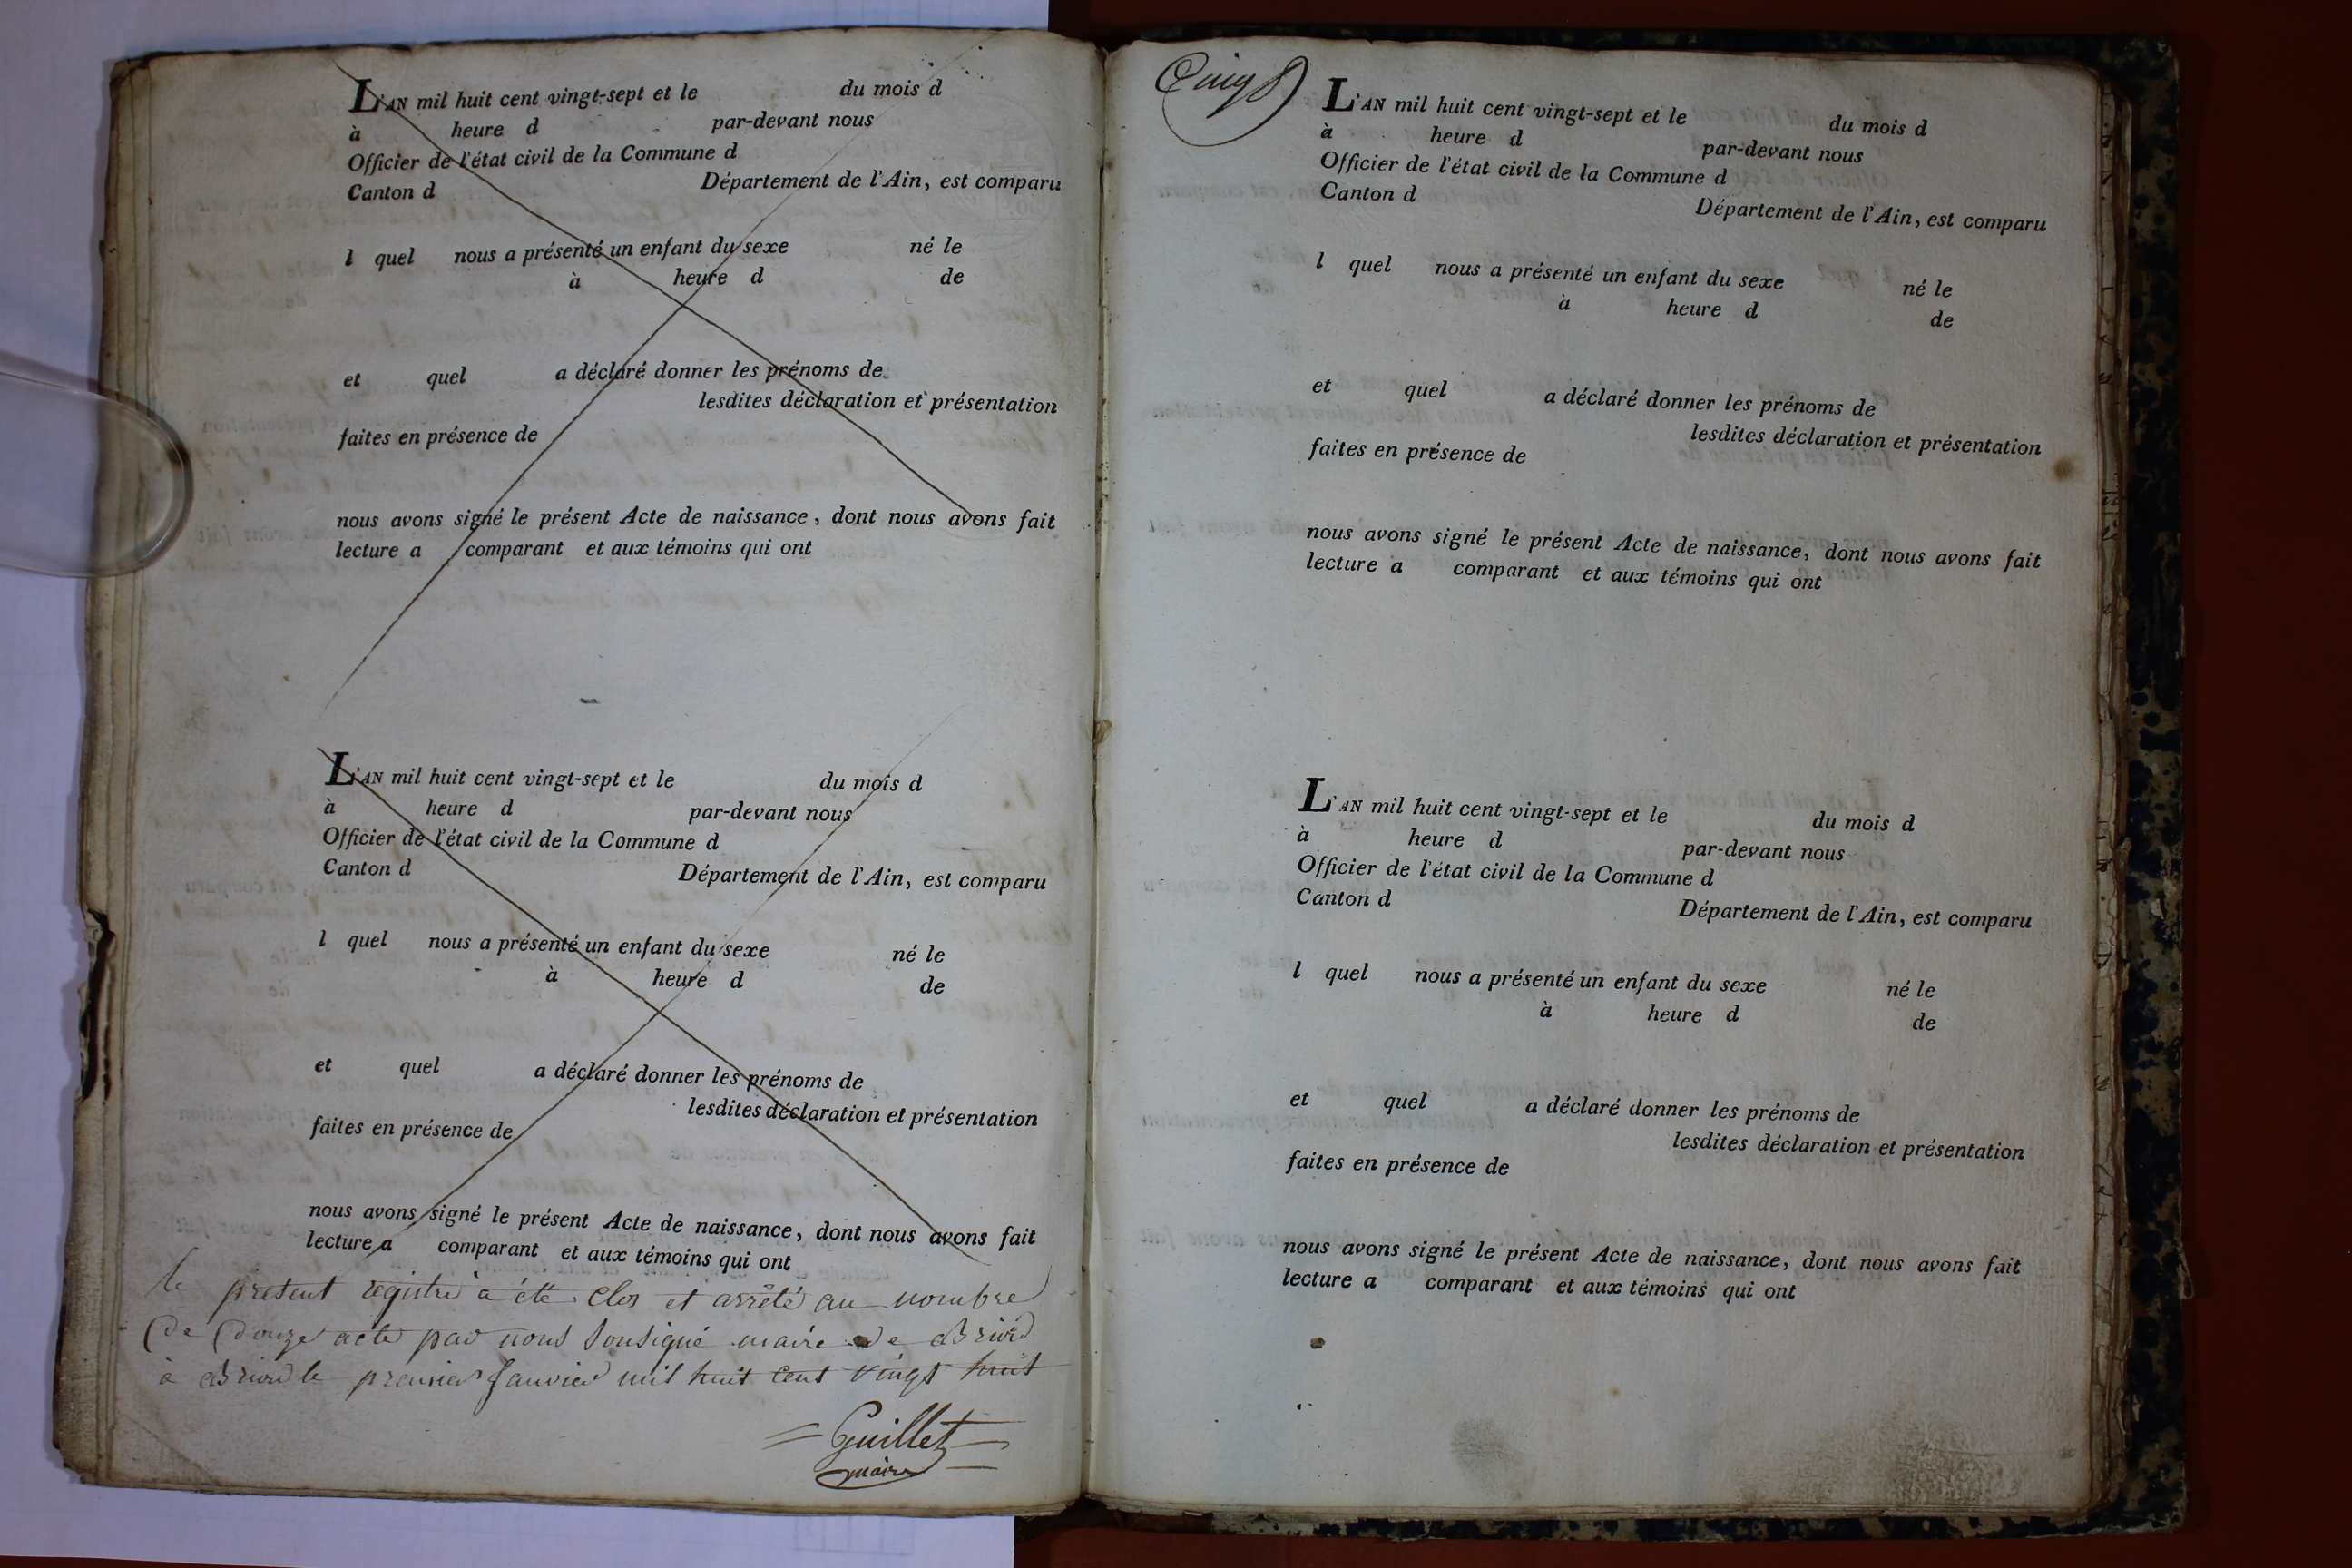 L'AN mil huit cent vingt-sept et le du mois d
à heure d par-devant nous
Officier de l'état civil de la Commune d
Canton d Département de l'Ain, est comparu
l quel nous a présenté un enfant du sexe né le
à heure d de
et quel a déclaré donner les prénoms de
lesdites déclaration et présentation
faites en présence de
nous avons signé le présent Acte de naissance, dont nous avons fait
lecture a comparant et aux témoins qui ont
L'AN mil huit cent vingt-sept et le du mois d
à heure d par-devant nous
Officier de l'état civil de la Commune d
Canton d Département de l'Ain, est comparu
l quel nous a présenté un enfant du sexe né le
à heure d de
et quel a déclaré donner les prénoms de
lesdites déclaration et présentation
faites en présence de
nous avons signé le présent Acte de naissance, dont nous avons fait
lecture a comparant et aux témoins qui ont
le present registre à été clos et arrêté au nombre
de douze acte par nous sousigné maire de Briord
à Briord le premier Janvier mil huit cent vingt huit
Guillet
maire
L'AN mil huit cent vingt-sept et le du mois d
à heure d par-devant nous
Officier de l'état civil de la Commune d
Canton d Département de l'Ain, est comparu
l quel nous a présenté un enfant du sexe né le
à heure d de
et quel a déclaré donner les prénoms de
lesdites déclaration et présentation
faites en présence de
nous avons signé le présent Acte de naissance, dont nous avons fait
lecture a comparant et aux témoins qui ont
L'AN mil huit cent vingt-sept et le du mois d
à heure d par-devant nous
Officier de l'état civil de la Commune d
Canton d Département de l'Ain, est comparu
l quel nous a présenté un enfant du sexe né le
à heure d de
et quel a déclaré donner les prénoms de
lesdites déclaration et présentation
faites en présence de
nous avons signé le présent Acte de naissance, dont nous avons fait
lecture a comparant et aux témoins qui ont